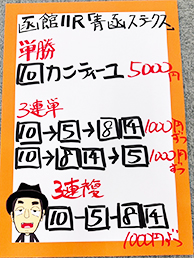 函館11R 青函ステークス
単勝
10 カンティーユ 5000円
3連単
10→5→8 14 1000円ずつ
10→8 14→5 1000円ずつ
3連複
10-5-8 14
1000円ずつ